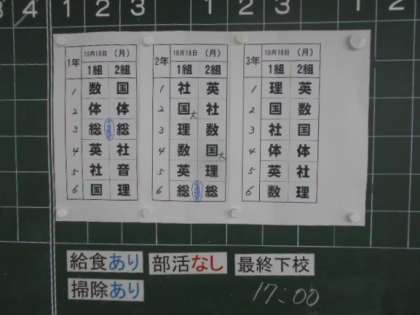 3 4 1 2 3 1 2 3 1 2 3
1年 10月18日 (月) 2年 10月18日 (月) 3年 10月18日 (月)
1組 2組 1組 2組 1組 2組
1 数 国 1 社 英 1 理 英
2 体 体 2 国 社 2 国 数
3 総 総 3 理 数 3 社 国
4 英 社 4 数 国 4 体 体
5 社 音 5 英 理 5 英 社
6 国 理 6 総 総 6 数 理
給食あり 部活なし 最終下校
掃除あり 17:00